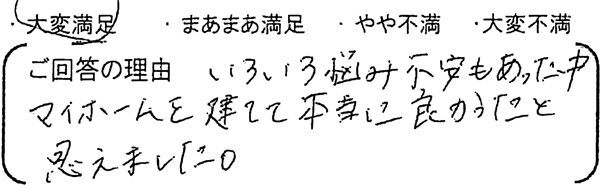 ・大変満足 ・まあまあ満足 ・やや不満 ・大変不満
ご回答の理由 いろいろ悩み不安もあった中
マイホームを建てて本当に良かったと
思えました。